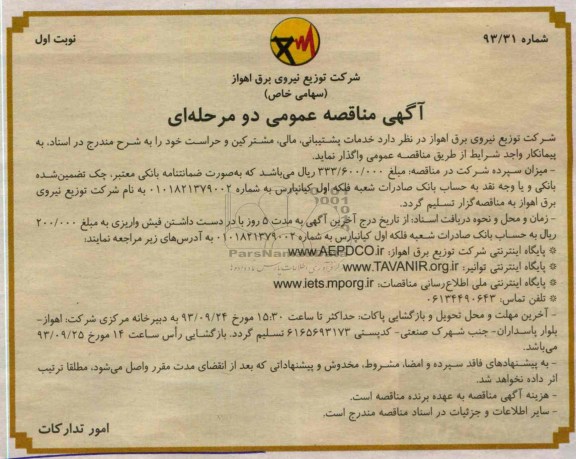 شماره ۹۳/۳۱
نوبت اول
شرکت توزیع نیروی برق اهواز
(سهامی خاص)
آگهی مناقصه عمومی دو مرحله‌ای
شرکت توزیع نیروی برق اهواز در نظر دارد خدمات پشتیبانی، مالی، مشترکین و حراست خود را به شرح مندرج در اسناد، به
پیمانکار واجد شرایط از طریق مناقصه عمومی واگذار نماید.
- میزان سپرده شرکت در مناقصه: مبلغ ۳۳۳/۶۰۰/۰۰۰ ریال می‌باشد که به‌صورت ضمانتنامه بانکی معتبر، چک تضمین‌شده
بانکی و یا وجه نقد به حساب بانک صادرات شعبه فلکه اول کیانپارس به شماره ۰۱۰۱۸۲۱۳۷۹۰۰۲ به نام شرکت توزیع نیروی
برق اهواز به مناقصه‌گزار تسلیم گردد.
- زمان و محل و نحوه دریافت اسناد: از تاریخ درج آخرین آگهی به مدت ۵ روز با در دست داشتن فیش واریزی به مبلغ ۲۰۰/۰۰۰
ریال به حساب بانک صادرات شعبه فلکه اول کیانپارس به شماره ۰۱۰۱۸۲۱۳۷۹۰۰۲ به آدرس‌های زیر مراجعه نمایند:
* پایگاه اینترنتی شرکت توزیع برق اهواز: www.AEPDCO.ir
* پایگاه اینترنتی توانیر: www.TAVANIR.org.ir
* پایگاه اینترنتی ملی اطلاع‌رسانی مناقصات: www.iets.mporg.ir
* تلفن تماس: ۰۶۱۳۴۴۹۰۶۴۳
- آخرین مهلت و محل تحویل و بازگشایی پاکات: حداکثر تا ساعت ۱۵:۳۰ مورخ ۹۳/۰۹/۲۴ به دبیرخانه مرکزی شرکت: اهواز-
بلوار پاسداران- جنب شهرک صنعتی- کدپستی ۶۱۶۵۶۹۳۱۷۳ تسلیم گردد. بازگشایی رأس ساعت ۱۴ مورخ ۹۳/۰۹/۲۵
می‌باشد.
- به پیشنهادهای فاقد سپرده و امضا، مشروط، مخدوش و پیشنهاداتی که بعد از انقضای مدت مقرر واصل می‌شود، مطلقا ترتیب
اثر داده نخواهد شد.
- هزینه آگهی مناقصه به عهده برنده مناقصه است.
- سایر اطلاعات و جزئیات در اسناد مناقصه مندرج است.
امور تدارکات